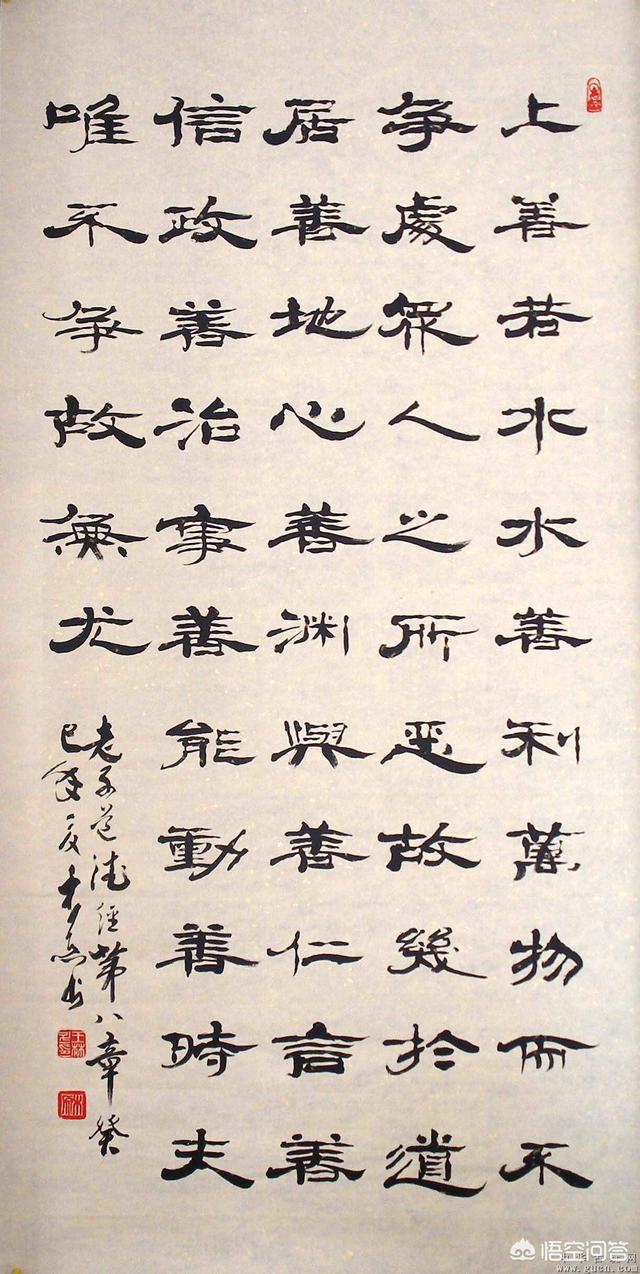 上善若水水善利萬物而不
爭處眾人之所惡故幾於道
居善地心善渊與善仁言善
信政善治事善能動善時夫
唯不爭故無尤
老子道德經第八章癸
巳年夏书
悟空问答
www.gucn.com